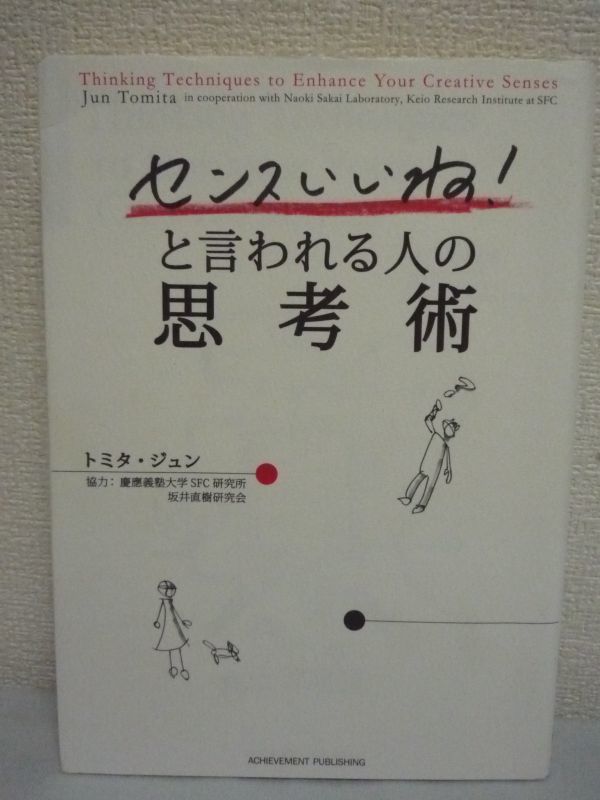 Thinking Techniques to Enhance Your Creative Senses
Jun Tomita in cooperation with Naoki Sakai Laboratory, Keio Research Institute at SFC
センスいいね!
と言われる人の
思考術
トミタ・ジュン
協力：慶應義塾大学 SFC 研究所
坂井直樹研究会
ACHIEVEMENT PUBLISHING